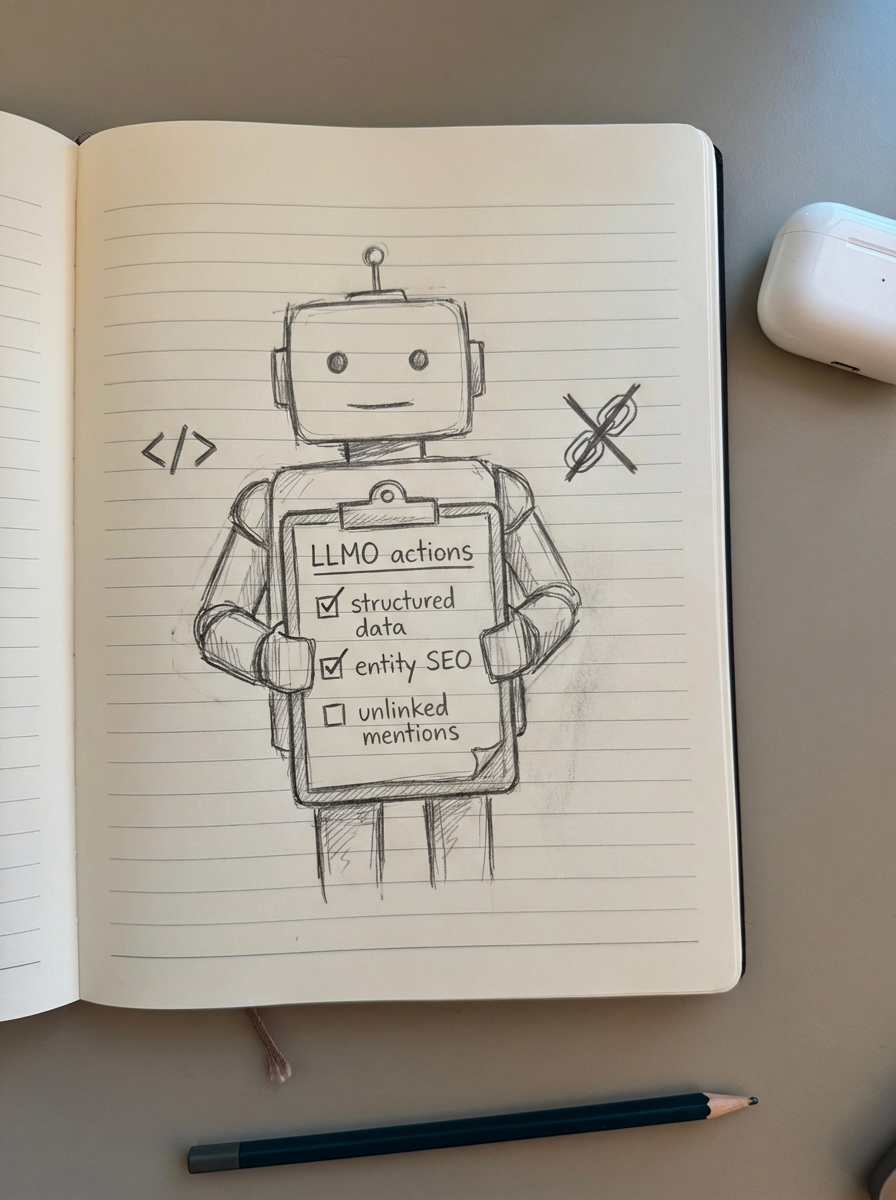 </>
LLMO actions
structured
data
entity SEO
unlinked
mentions